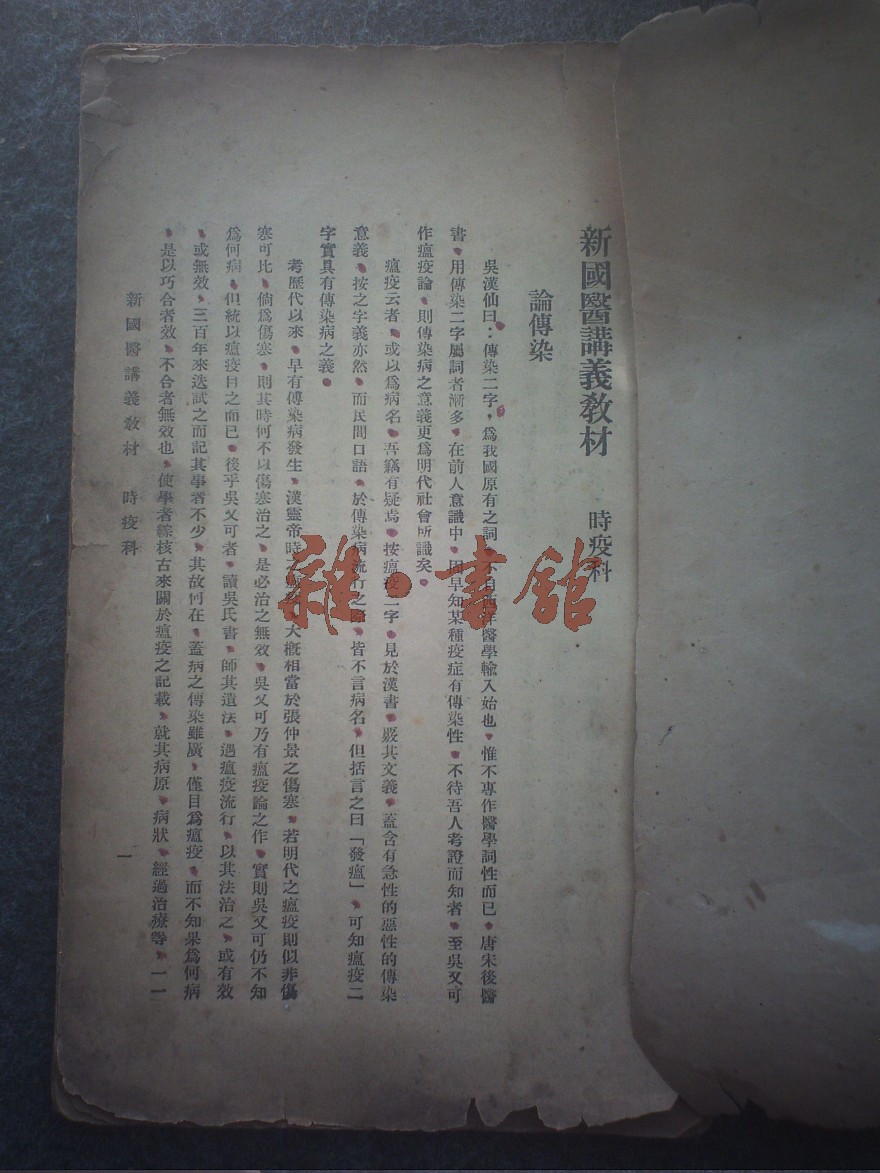 新國醫講義教材　時疫科
論傳染
吳漢仙曰：傳染二字，爲我國原有之詞，不自西洋醫學輸入始也，惟不專作醫學詞性而已，唐宋後醫
書，用傳染二字屬詞者漸多，在前人意識中，固早知某種疫症有傳染性，不待吾人考證而知者，至吳又可
作瘟疫論，則傳染病之意義更爲明代社會所識矣。
瘟疫云者，或以爲病名，吾竊有疑焉，按瘟疫二字，見於漢書，覈其文義，蓋含有急性的惡性的傳染
意義，按之字義亦然，而民間口語，於傳染病流行之際，皆不言病名，但括言之曰「發瘟」，可知瘟疫二
字實具有傳染病之義。
考歷代以來，早有傳染病發生，漢靈帝時之，大槪相當於張仲景之傷寒，若明代之瘟疫則似非傷
寒可比，倘爲傷寒，則其時何不以傷寒治之，是必治之無效，吳又可乃有瘟疫論之作，實則吳又可仍不知
爲何病，但統以瘟疫目之而已，後乎吳又可者，讀吳氏書，師其遺法，遇瘟疫流行，以其法治之，或有效
，或無效，三百年來迭試之而記其事者不少，其故何在，蓋病之傳染雖廣，僅目爲瘟疫，而不知果爲何病
，是以巧合者效，不合者無效也，使學者綜核古來關於瘟疫之記載，就其病原，病狀，經過治療等，一一
新國醫講義教材　時疫科　一
雜·書館